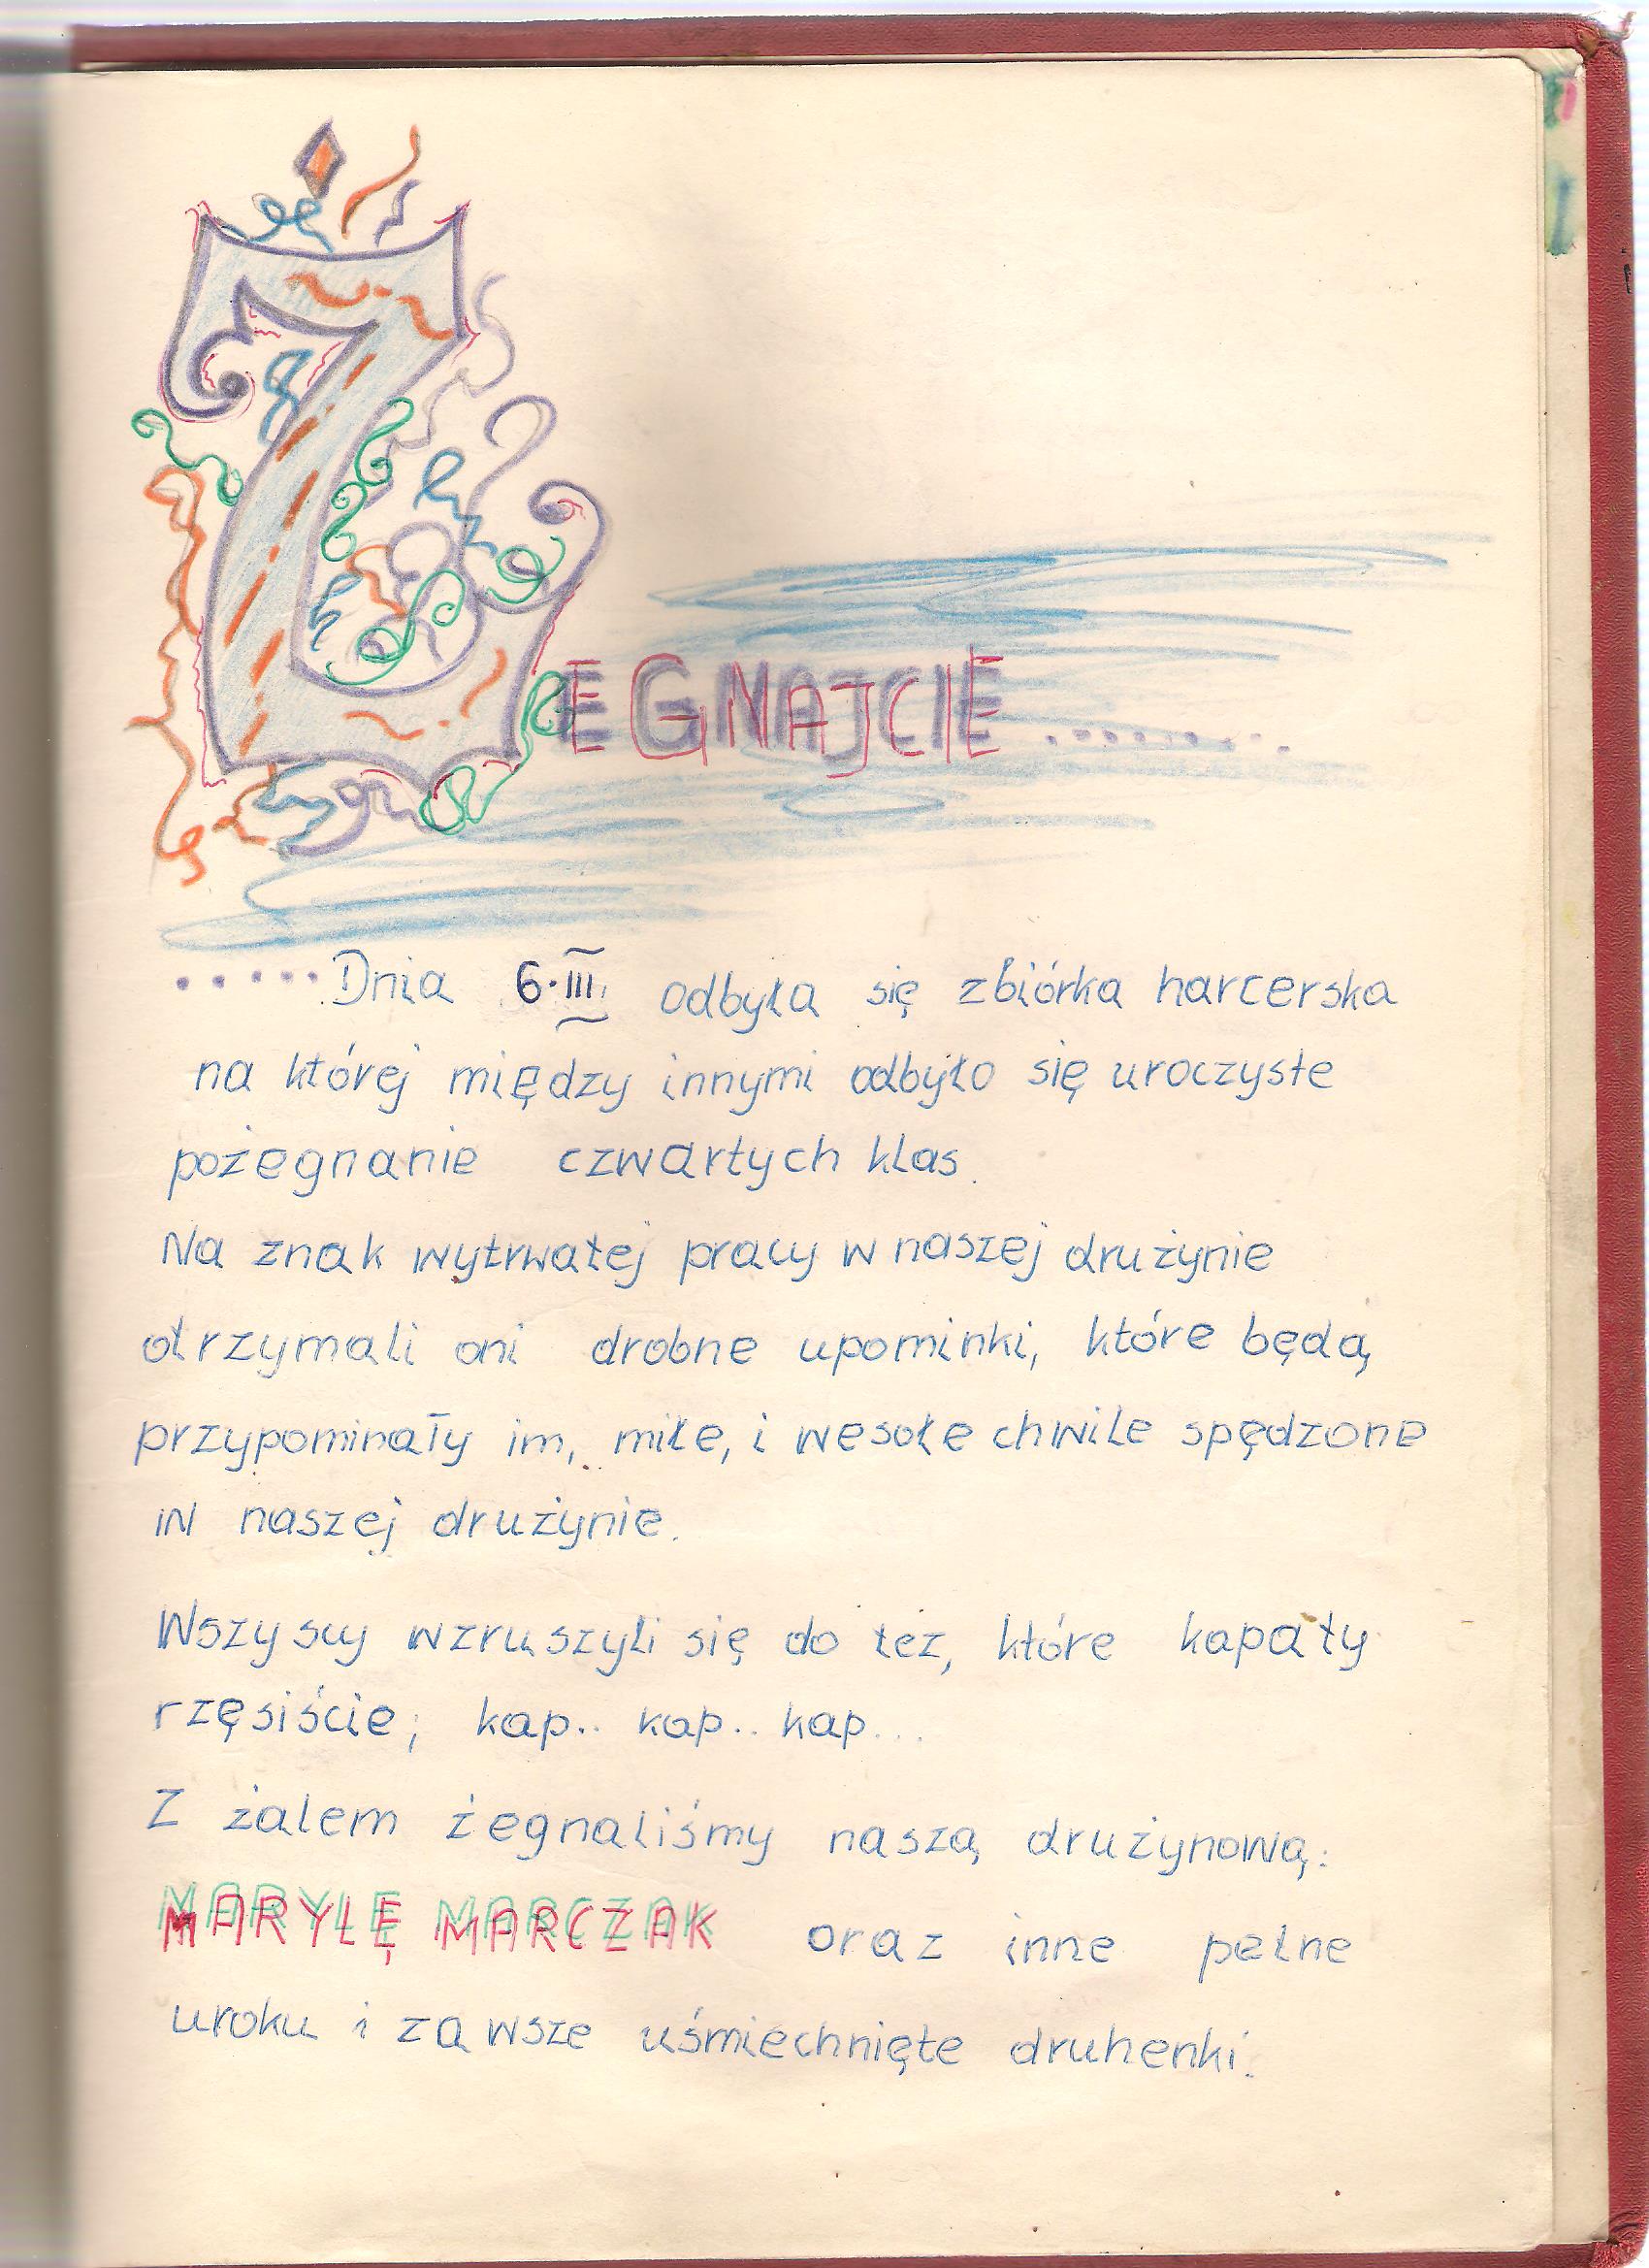 ŻEGNAJCIE ........
..... Dnia 6.III. odbyła się zbiórka harcerska
na której między innymi odbyło się uroczyste
pożegnanie czwartych klas.
Na znak wytrwałej pracy w naszej drużynie
otrzymali oni drobne upominki, które będą
przypominały im, miłe, i wesołe chwile spędzone
w naszej drużynie.
Wszyscy wzruszyli się do łez, które kapały
rzęsiście; kap.. kap.. kap...
Z żalem żegnaliśmy naszą drużynową:
MARYLĘ MARCZAK oraz inne pełne
uroku i zawsze uśmiechnięte druhenki.